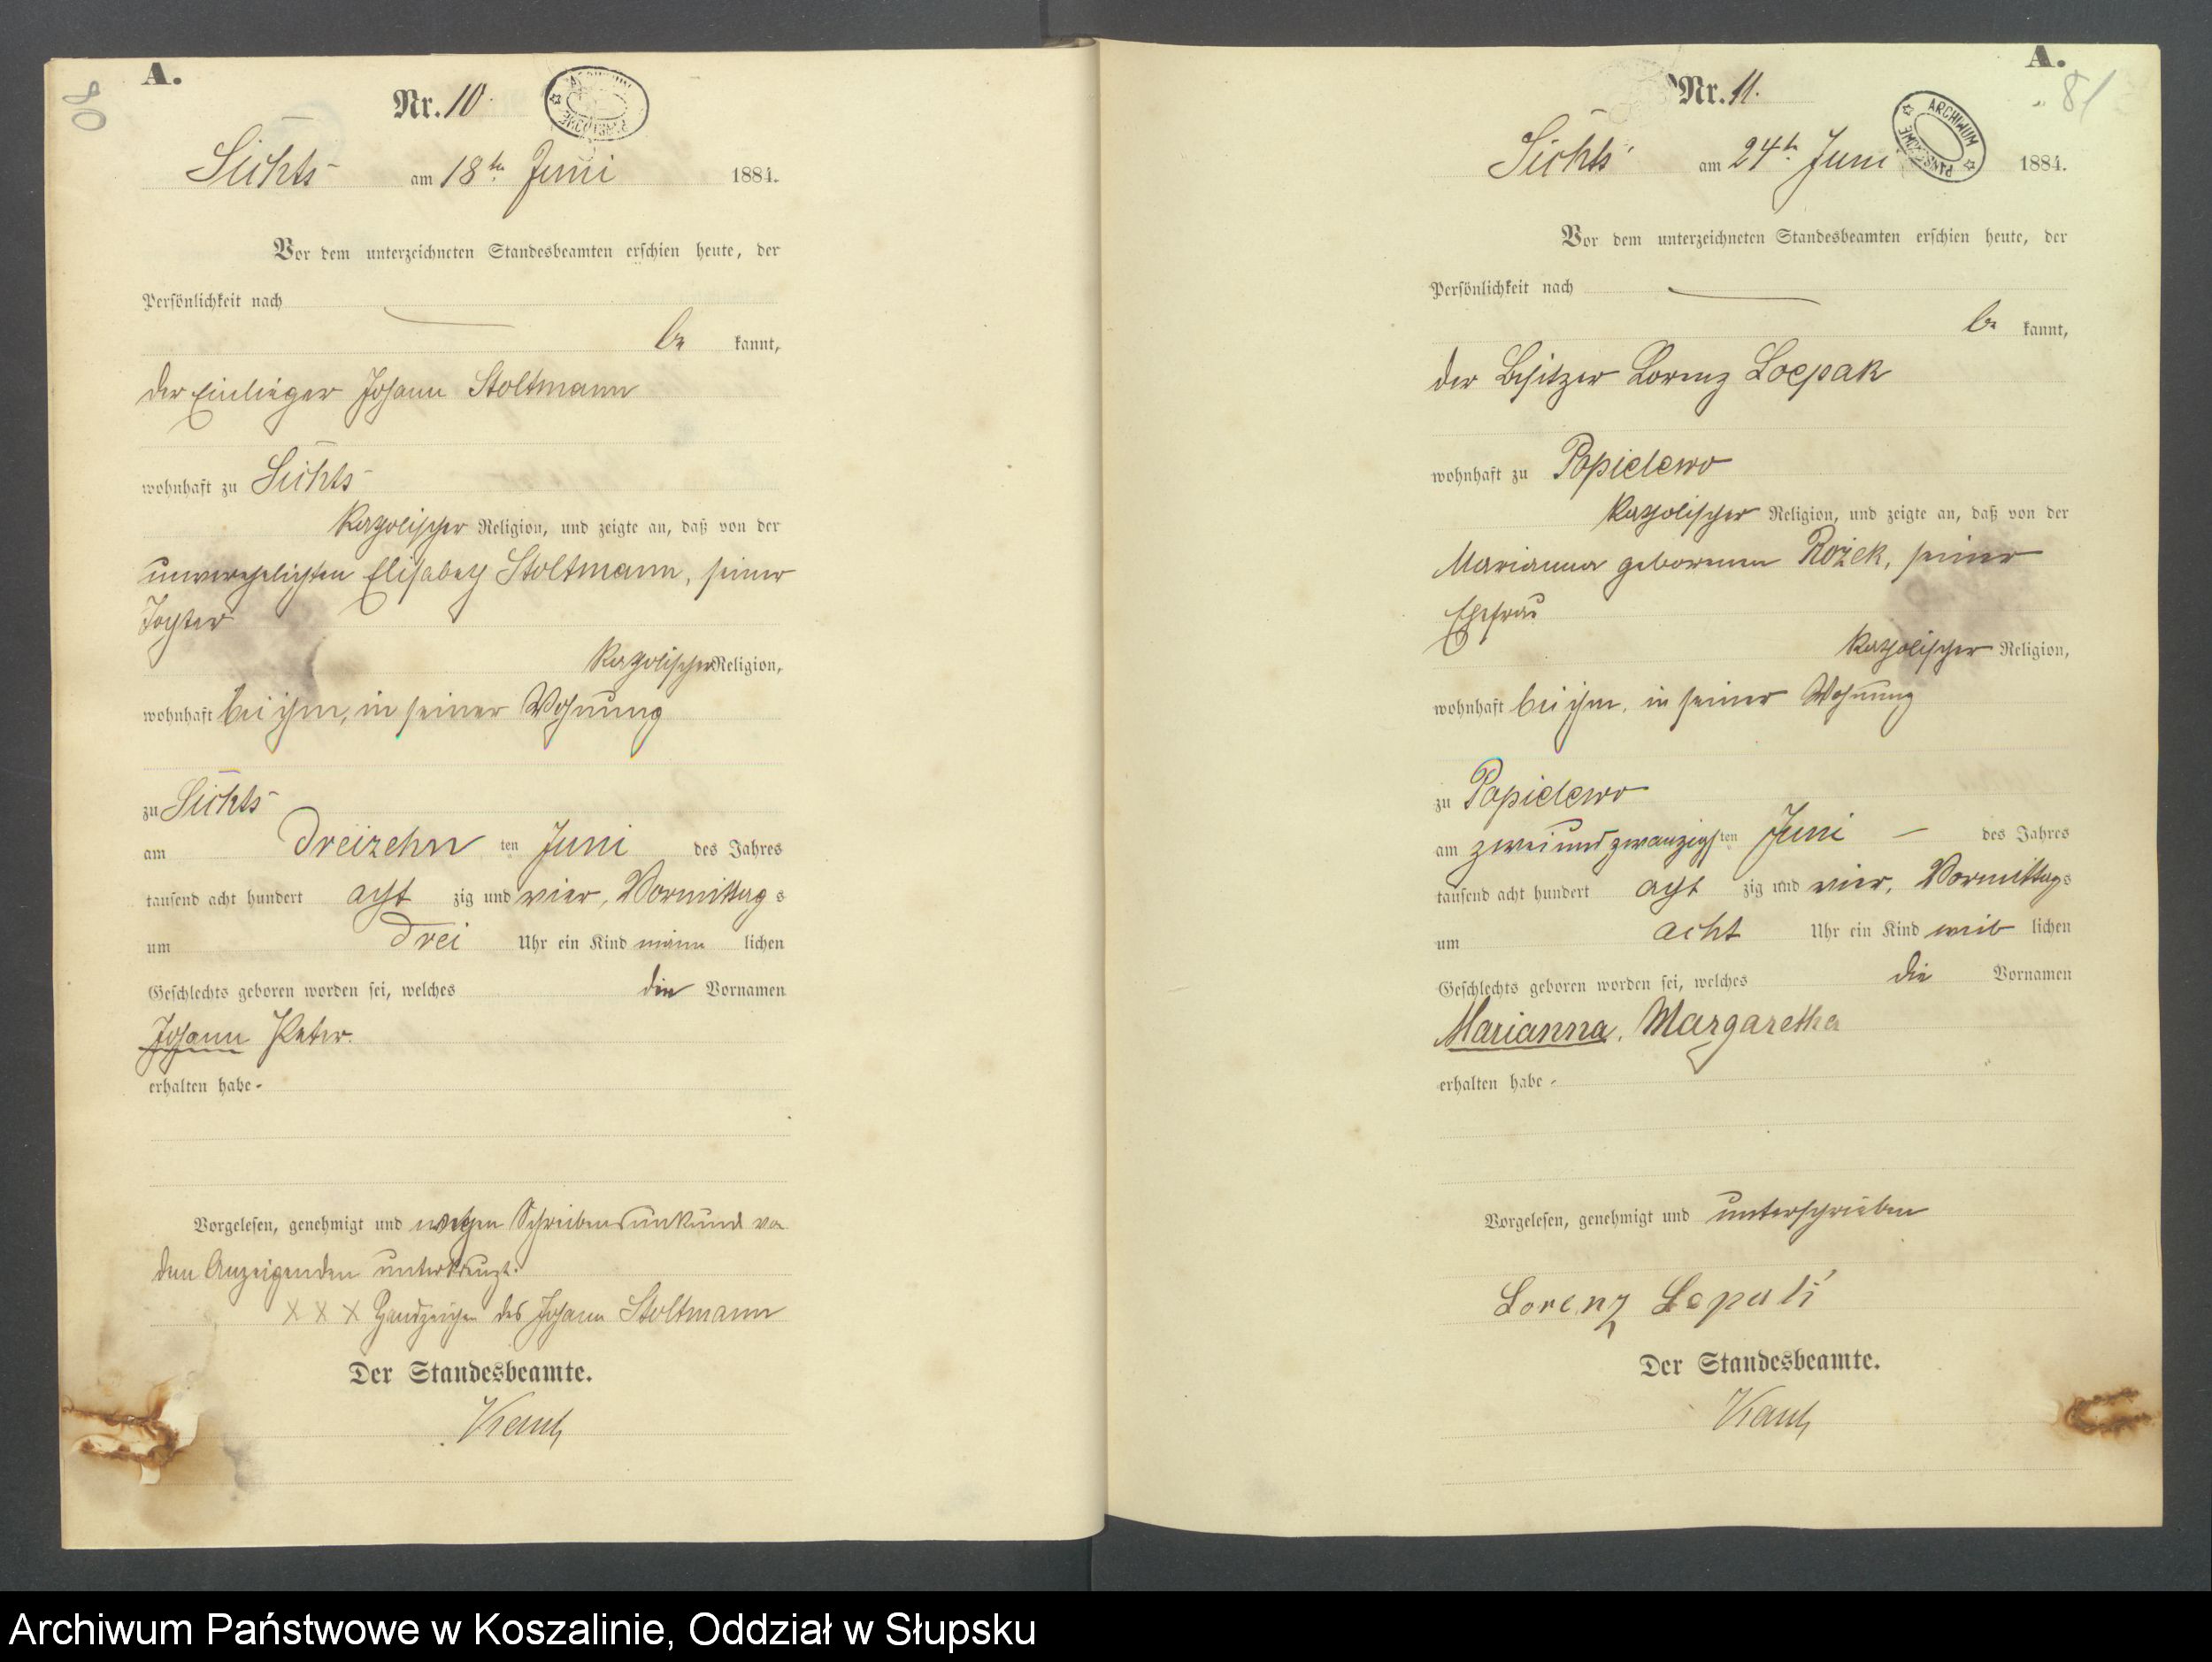 A.
Nr. 10.
Lichts am 18ten Juni 1884.
Vor dem unterzeichneten Standesbeamten erschien heute, der
Persönlichkeit nach
be kannt,
der Einlieger Johann Stoltmann
wohnhaft zu Lichts
katholischer Religion, und zeigte an, daß von der
unverehelichten Elisabeth Stoltmann, seiner
Tochter
katholischer Religion,
wohnhaft bei ihm, in seiner Wohnung
zu Lichts
am dreizehn ten Juni des Jahres
tausend acht hundert acht zig und vier, Vormittag s
um drei Uhr ein Kind männ lichen
Geschlechts geboren worden sei, welches die Vornamen
Johann Peter.
erhalten habe.
Vorgelesen, genehmigt und wegen Schreibensunkund von
dem Anzeigenden unterkreuzt.
X X X Handzeichen des Johann Stoltmann
Der Standesbeamte.
A.
81
Nr. 11.
Lichts am 24t. Juni 1884.
ARCHIWUM PAŃSTWOWE
Vor dem unterzeichneten Standesbeamten erschien heute, der
Persönlichkeit nach
be kannt,
der Besitzer Lorenz Loepak
wohnhaft zu Popielewo
katholischer Religion, und zeigte an, daß von der
Marianna geborenen Rożek, seiner
Ehefrau
katholischer Religion,
wohnhaft bei ihm, in seiner Wohnung
zu Popielewo
am zweiundzwanzigsten Juni — des Jahres
tausend acht hundert acht zig und vier, Vormittags
um acht Uhr ein Kind weib lichen
Geschlechts geboren worden sei, welches die Vornamen
Marianna, Margaretha
erhalten habe.
Vorgelesen, genehmigt und unterschrieben
Lorenz
Der Standesbeamte.
Archiwum Państwowe w Koszalinie, Oddział w Słupsku